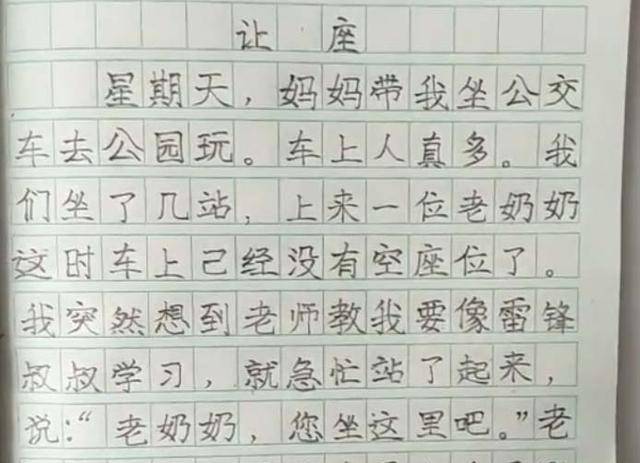 让座
星期天，妈妈带我坐公交
车去公园玩。车上人真多。我
们坐了几站，上来一位老奶奶
这时车上已经没有空座位了。
我突然想到老师教我要像雷锋
叔叔学习，就急忙站了起来，
说：“老奶奶，您坐这里吧。”老